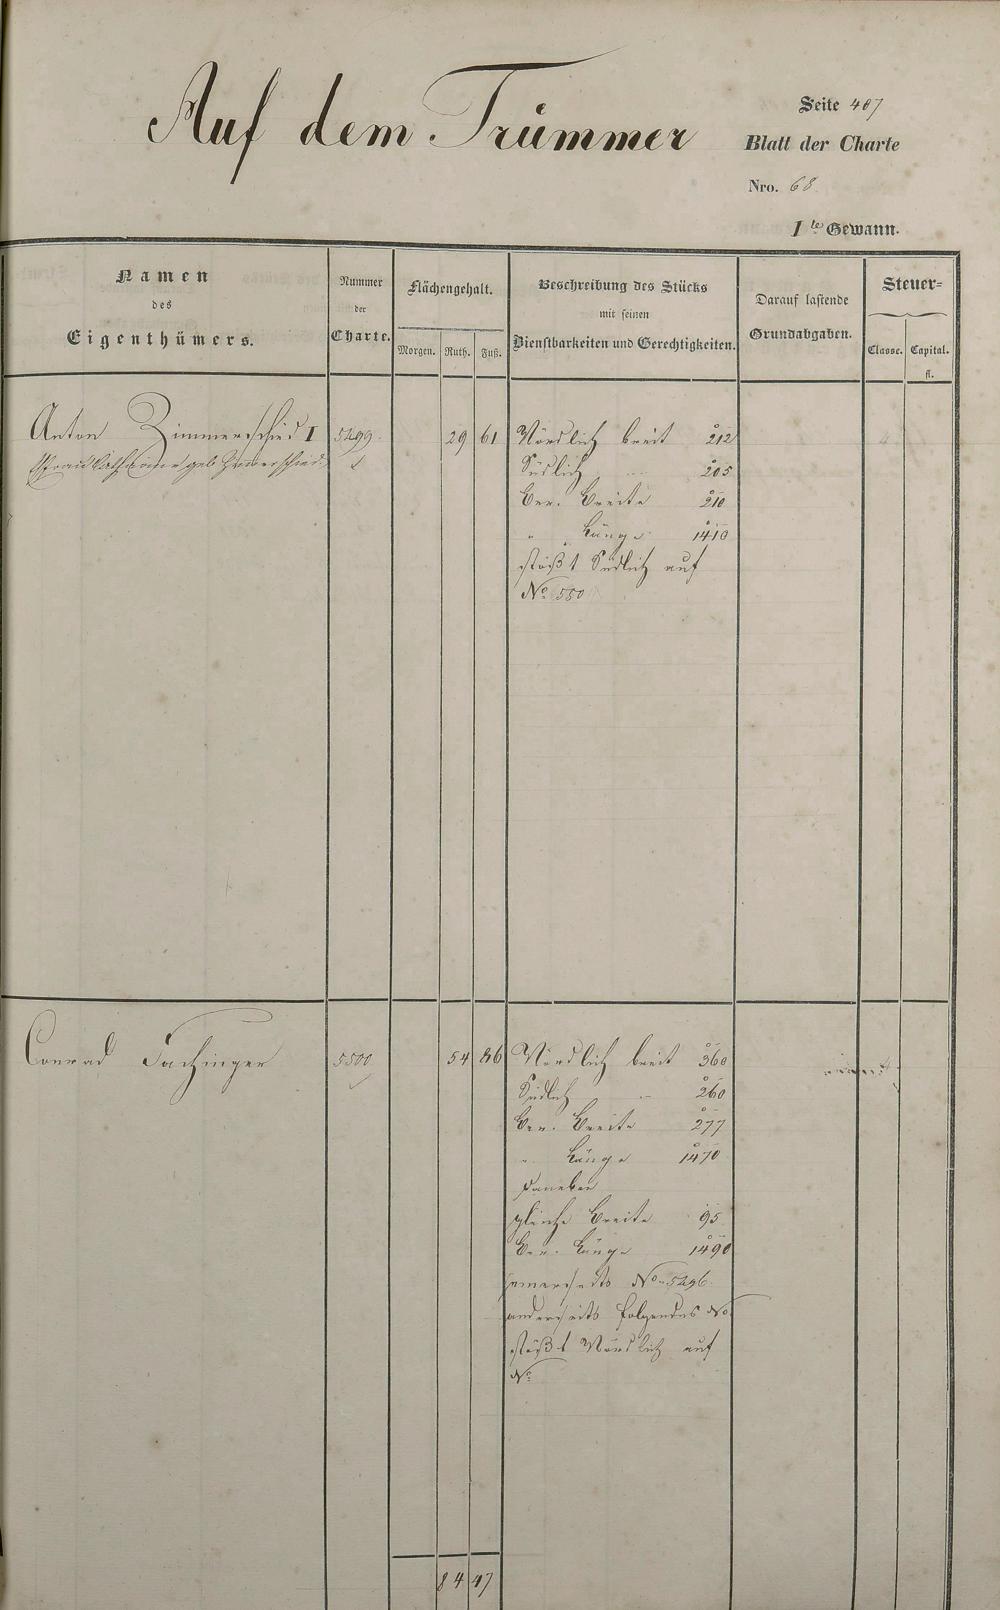 Auf dem Trümmer
Seite 407
Blatt der Charte
Nro. 68
1te Gewann.
Namen
des
Eigenthümers.
Nummer
der
Charte.
Flächengehalt.
Morgen. Ruth. Fuß.
Beschreibung des Stücks
mit seinen
Dienstbarkeiten und Gerechtigkeiten.
Darauf lastende
Grundabgaben.
Steuer=
Classe. Capital.
fl.
Anton Zimmerschied I 5499 29 61 Nördlich breit 212
Südlich 205
Ber. Breite 210
" Länge 1410
stößt Südlich auf
No 550
Conrad Fachinger 5500 54 86 Nördlich breit 360
Südlich " 260
Ber. Breite 277
" Länge 1470
daneben
gleiche Breite 95
Ber. Länge 1490
einerseits No 5496
anderseits folgendes No
stößt Nördlich auf
No
84 47